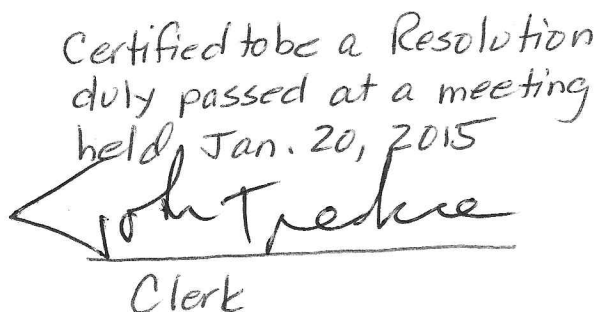 Certified to be a Resolution
duly passed at a meeting
held, Jan. 20, 2015
John
Clerk